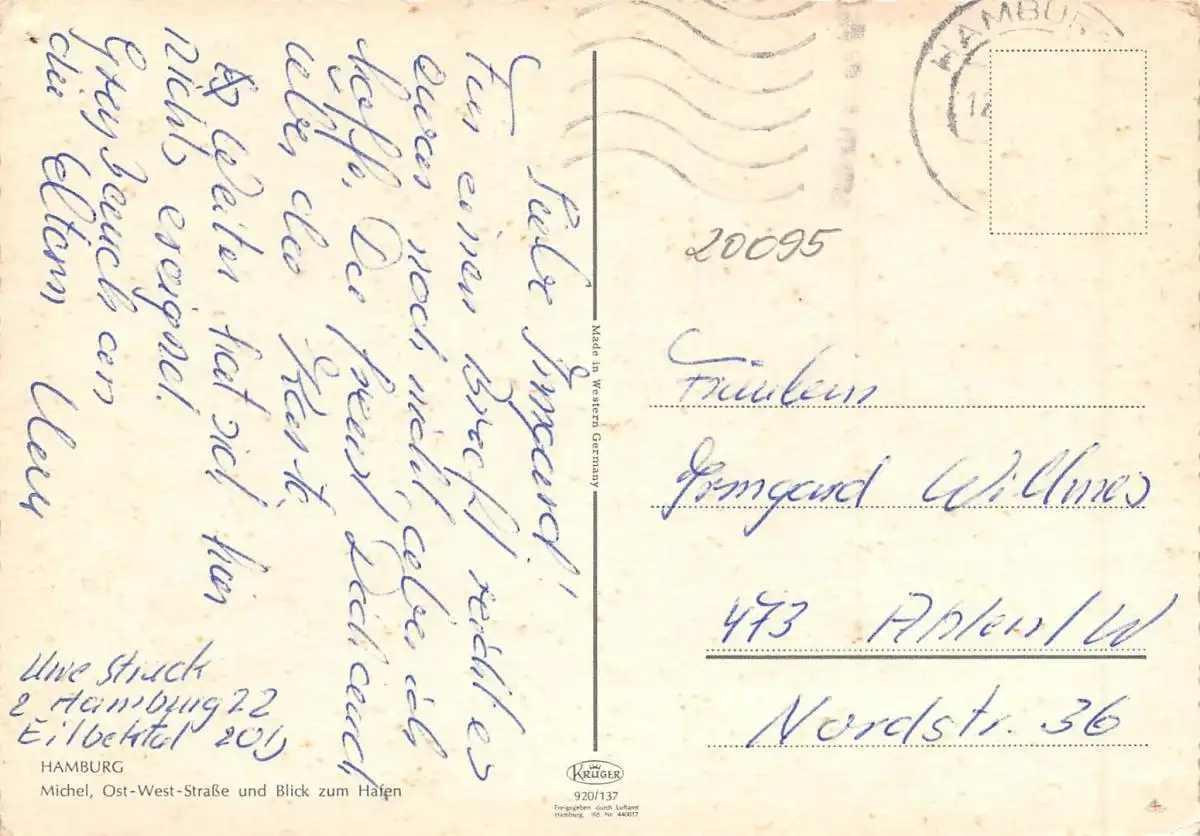 Liebe Irmgard!
Für einen Brief reicht es
zwar noch nicht, aber ich
hoffe, Du freust Dich auch
über die Karte.
Weiter hat sich hier
nichts ereignet.
Grüße auch an
die Eltern
Uwe
Uwe Struck
2 Hamburg 22
Eilbektal 20
HAMBURG
Michel, Ost-West-Straße und Blick zum Hafen
Made in Western Germany
KRÜGER
920/137
Freigegeben durch Luftamt
Hamburg, lfd. Nr. 440017
HAMBURG
20095
Fräulein
Irmgard Willmes
473 Ahlen/W
Nordstr. 36